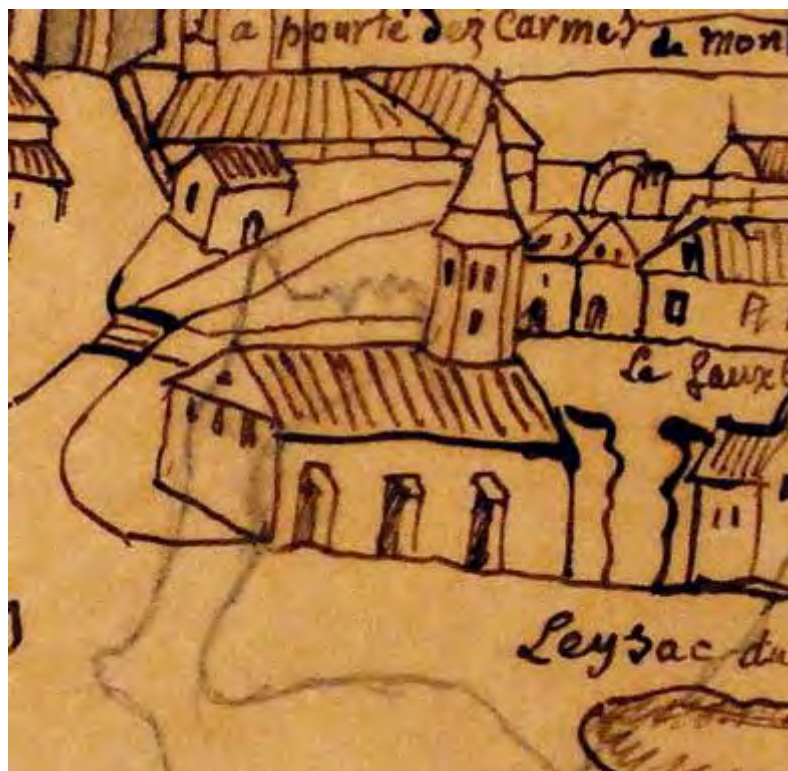 La pourte dez Carmes de Mon
Le faux
Leysac du